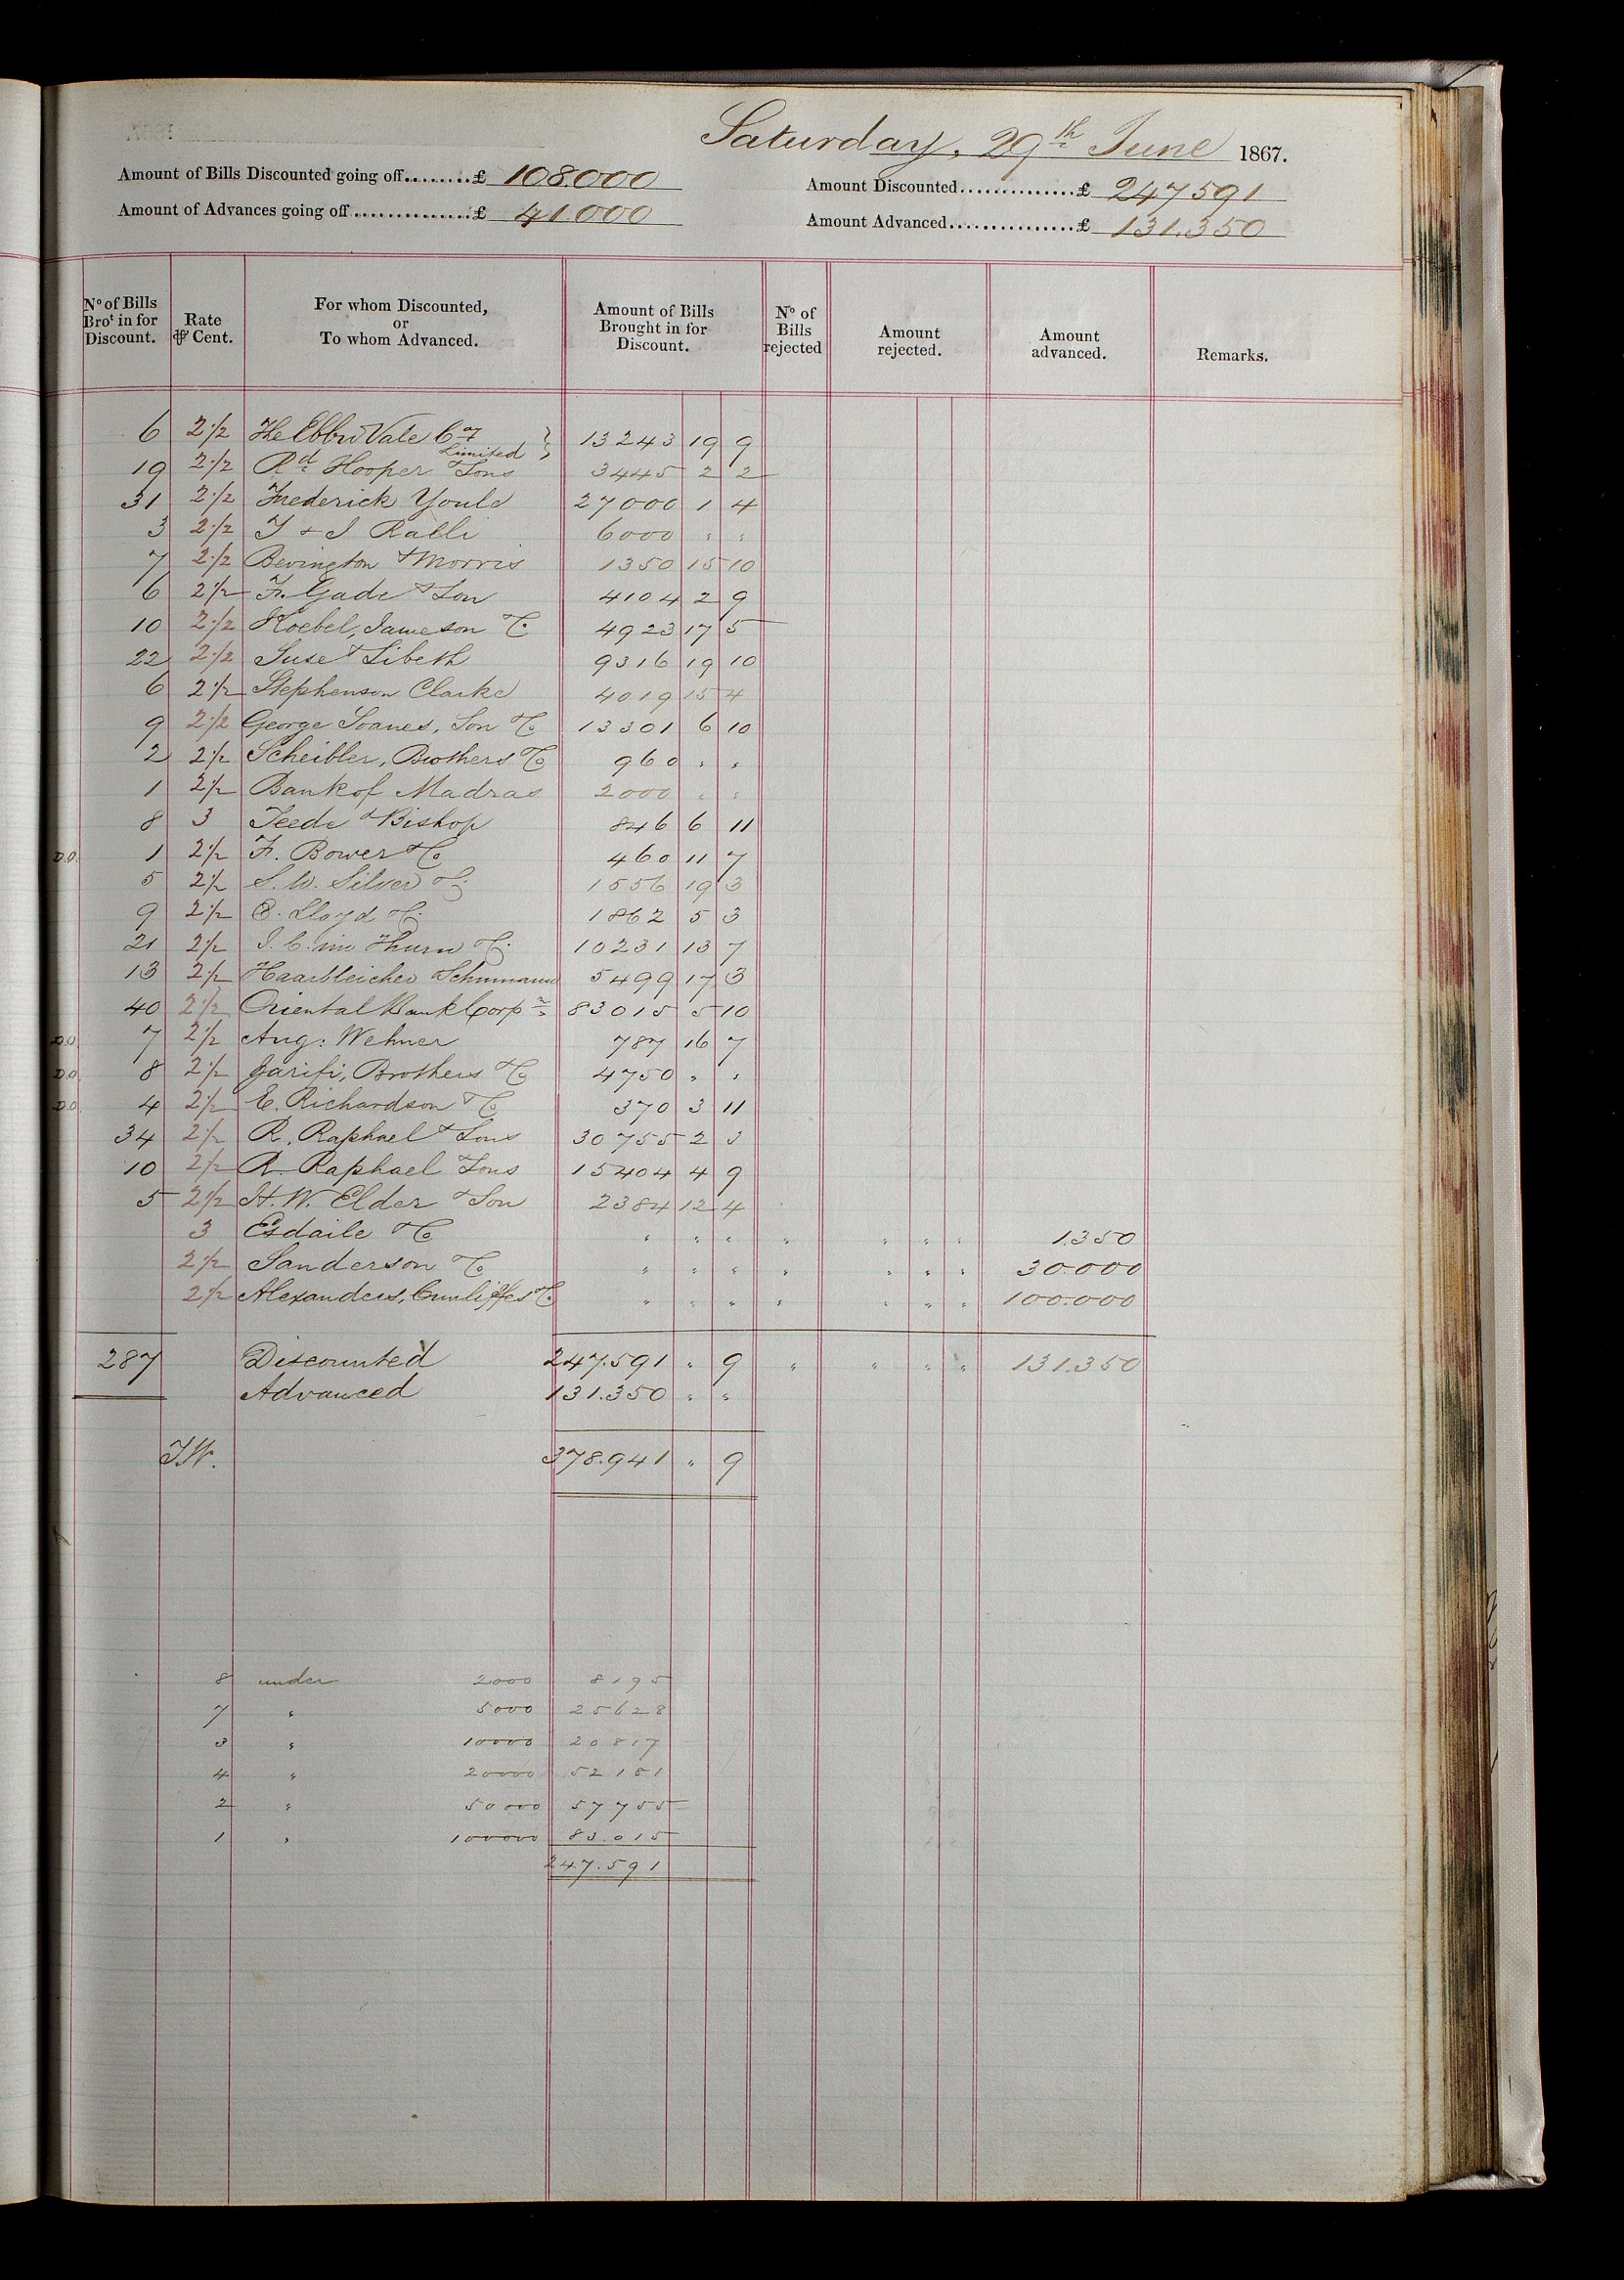 Saturday, 29th June 1867.
Amount of Bills Discounted going off........£ 108.000
Amount Discounted..............£ 247591
Amount of Advances going off...............£ 41.000
Amount Advanced................£ 131.350
No of Bills Brot in for Discount. | Rate ⅌ Cent. | For whom Discounted, or To whom Advanced. | Amount of Bills Brought in for Discount. | No of Bills rejected | Amount rejected. | Amount advanced. | Remarks.
6 2½ The Ebbw Vale Coy Limited } 13243 19 9
19 2½ Rd Hooper & Sons 3445 2 2
31 2½ Frederick Youle 27000 1 4
3 2½ T & J Ralli 6000 " "
7 2½ Bevington & Morris 1350 15 10
6 2½ F. Gade & Son 4104 2 9
10 2½ Koebel, Jameson & Co 4923 17 5
22 2½ Suse & Sibeth 9316 19 10
6 2½ Stephenson Clarke 4019 15 4
9 2½ George Soanes, Son & Co 13301 6 10
2 2½ Scheibler, Brothers & Co 960 " "
1 2½ Bank of Madras 2000 " "
8 3 Teede & Bishop 846 6 11
D.O. 1 2½ F. Bower & Co 460 11 7
5 2½ S. W. Silver & Co 1556 19 3
9 2½ E. Lloyd & Co 1862 5 3
21 2½ J. C. im Thurn & Co 10231 13 7
13 2½ Haarbleicher & Schumann 5499 17 3
40 2½ Oriental Bank Corpn 83015 5 10
D.O. 7 2½ Aug: Wehner 787 16 7
D.O. 8 2½ Zarifi, Brothers & Co 4750 " "
D.O. 4 2½ E. Richardson & Co 370 3 11
34 2½ R. Raphael & Sons 30755 2 3
10 2½ R. Raphael & Sons 15404 4 9
5 2½ H. W. Elder & Son 2384 12 4
3 Esdaile & Co " " " " " " " 1.350
2½ Sanderson & Co " " " " " " " 30.000
2½ Alexanders, Cunliffes & Co " " " " " " " 100.000
287 Discounted 247.591 " 9 " " " " 131.350
Advanced 131.350 " "
J.W. 378.941 " 9
8 under 2000 8195
7 " 5000 25628
3 " 10000 20817
4 " 20000 52181
2 " 50000 57755
1 " 100000 83.015
247.591